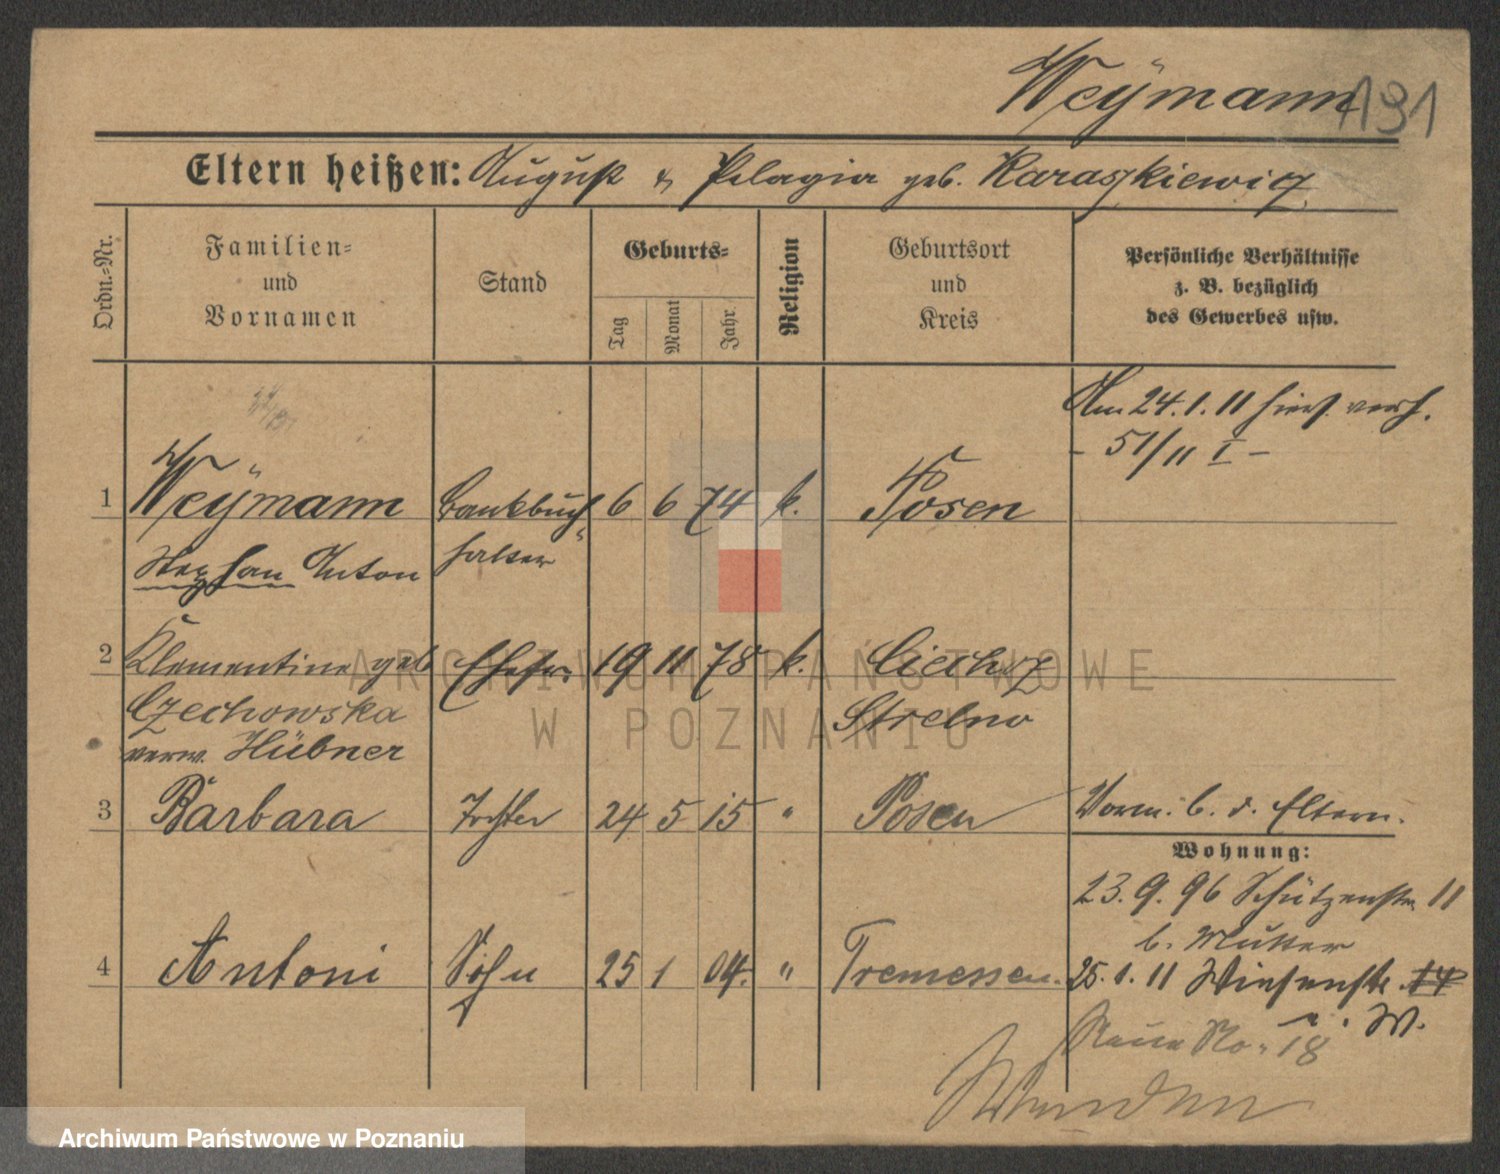 Weÿmann
191
Eltern heißen: August & Pelagia geb. Karaszkiewicz
Ordn.-Nr.
Familien-
und
Vornamen
Stand
Geburts-
Tag
Monat
Jahr
Religion
Geburtsort
und
Kreis
Persönliche Verhältnisse
z. B. bezüglich
des Gewerbes usw.
Am 24.1.11 hies. verh.
- 51/11 I -
1 Weÿmann Bankbuch 6 6 74 k. Posen
Stephan Anton halter
2 Klementine geb Ehefr. 19 11 78 k. Ciechrz
Czechowska Strelno
verw. Hübner
3 Barbara Tochter 24 5 15 " Posen Vorm. b. d. Eltern.
Wohnung:
23.9.96 Schützenstr. 11
b. Mutter
4 Antoni Sohn 25 1 04. " Tremessen. 25.1.11 Wiesenstr. 14
W.
Neue No. 18
ARCHIWUM PAŃSTWOWE
W POZNANIU
Archiwum Państwowe w Poznaniu